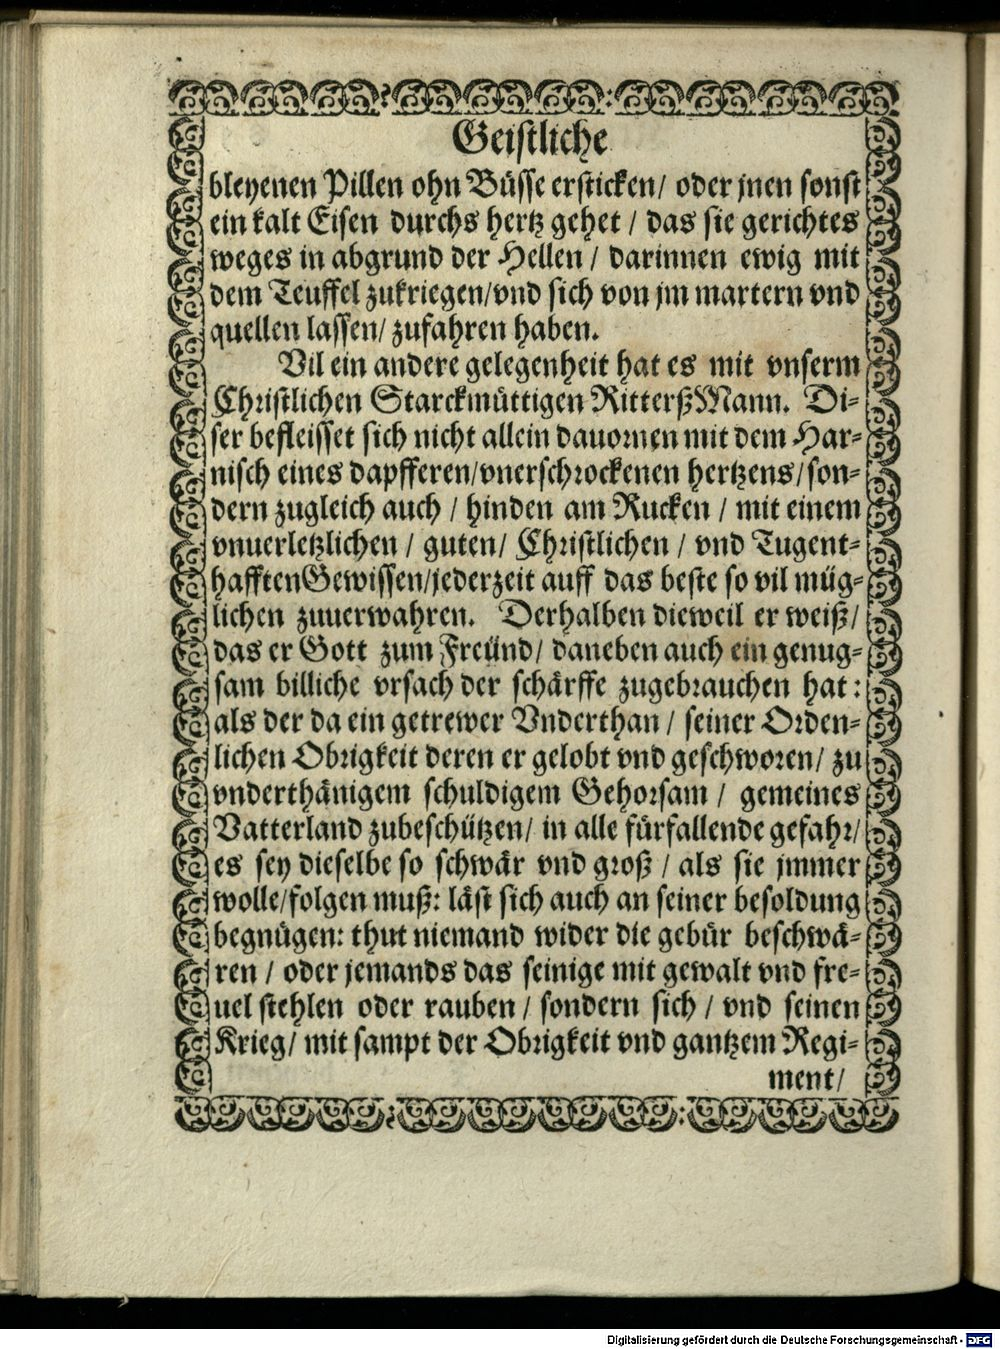 Geistliche
bleyenen Pillen ohn Büsse ersticken/ oder jnen sonst
ein kalt Eisen durchs hertz gehet / das sie gerichtes
weges in abgrund der Hellen / darinnen ewig mit
dem Teuffel zukriegen/vnd sich von jm martern vnd
quellen lassen/ zufahren haben.
Vil ein andere gelegenheit hat es mit vnserm
Christlichen Starckmüttigen RitterßMann. Di-
ser befleisset sich nicht allein dauornen mit dem Har-
nisch eines dapfferen/vnerschrockenen hertzens/son-
dern zugleich auch / hinden am Rucken / mit einem
vnuerletzlichen / guten/ Christlichen / vnd Tugent-
hafftenGewissen/jederzeit auff das beste so vil müg-
lichen zuuerwahren. Derhalben dieweil er weiß/
das er Gott zum Freünd/ daneben auch ein genug-
sam billiche vrsach der schärffe zugebrauchen hat:
als der da ein getrewer Vnderthan / seiner Orden-
lichen Obrigkeit deren er gelobt vnd geschworen/ zu
vnderthänigem schuldigem Gehorsam / gemeines
Vatterland zubeschützen/ in alle fürfallende gefahr/
es sey dieselbe so schwär vnd groß / als sie jmmer
wolle/folgen muß: läst sich auch an seiner besoldung
begnügen: thut niemand wider die gebür beschwä-
ren / oder jemands das seinige mit gewalt vnd fre-
uel stehlen oder rauben / sondern sich / vnd seinen
Krieg/ mit sampt der Obrigkeit vnd gantzem Regi-
ment/
Digitalisierung gefördert durch die Deutsche Forschungsgemeinschaft - DFG